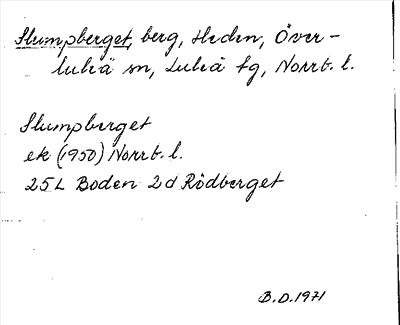 Slumpberget, berg, Heden, Över-
luleå sn, Luleå tg, Norrb. l.
Slumpberget
ek (1950) Norrb. l.
25L Boden 2d Rödberget
B.D. 1971